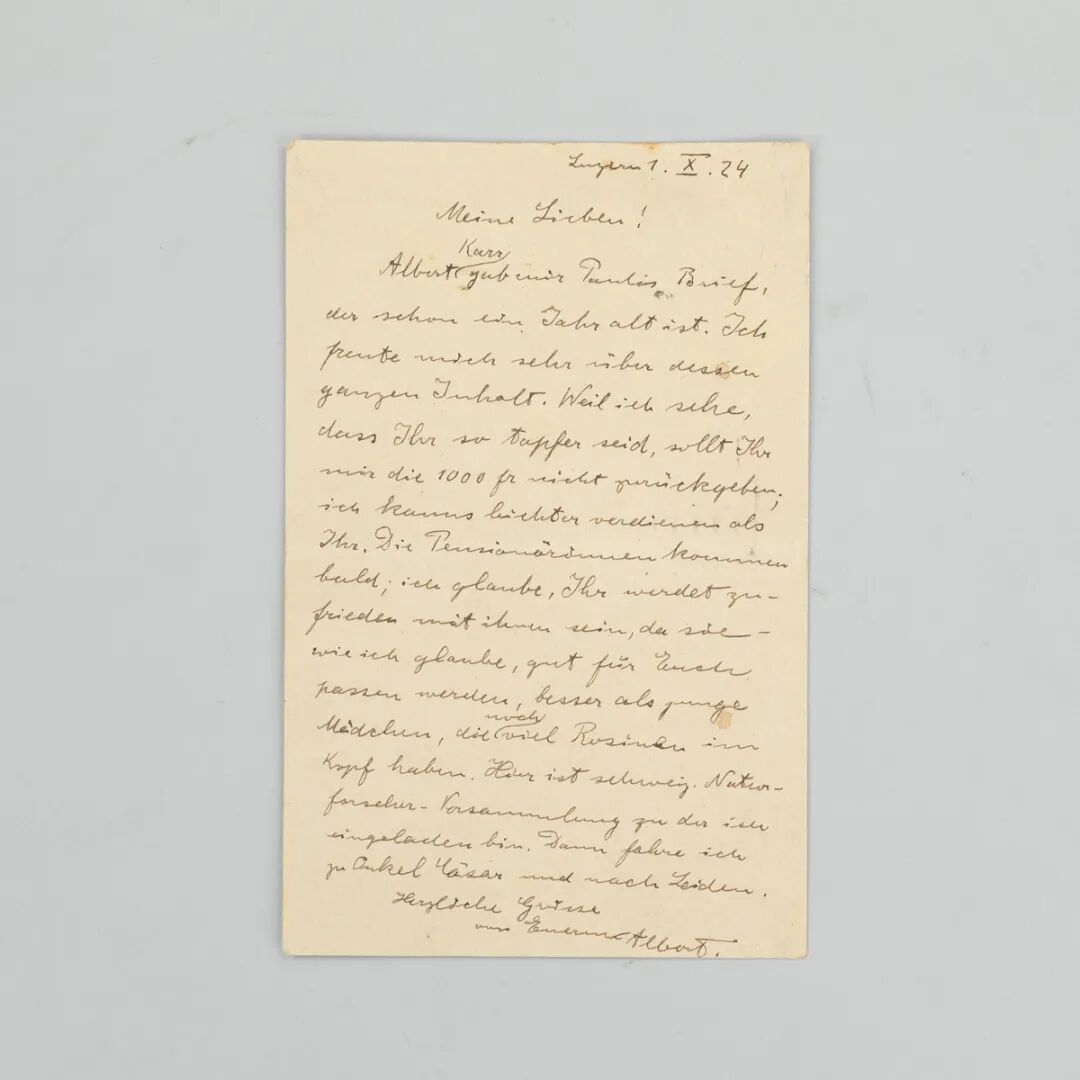 Luzern 1. X. 24
Meine Lieben!
Albert Karr gab mir Paulis Brief,
der schon ein Jahr alt ist. Ich
freute mich sehr über dessen
ganzen Inhalt. Weil ich sehe,
dass Ihr so tapfer seid, sollt Ihr
mir die 1000 fr nicht zurückgeben;
ich kanns leichter verdienen als
Ihr. Die Pensionärinnen kommen
bald; ich glaube, Ihr werdet zu-
frieden mit ihnen sein, da sie -
wie ich glaube, gut für Euch
passen werden, besser als junge
Mädchen, die noch viel Rosinen im
Kopf haben. Hier ist schweiz. Natur-
forscher-Versammlung zu der ich
eingeladen bin. Dann fahre ich
zu Onkel Cäsar und nach Leiden.
Herzliche Grüsse
von Eurem Albert.